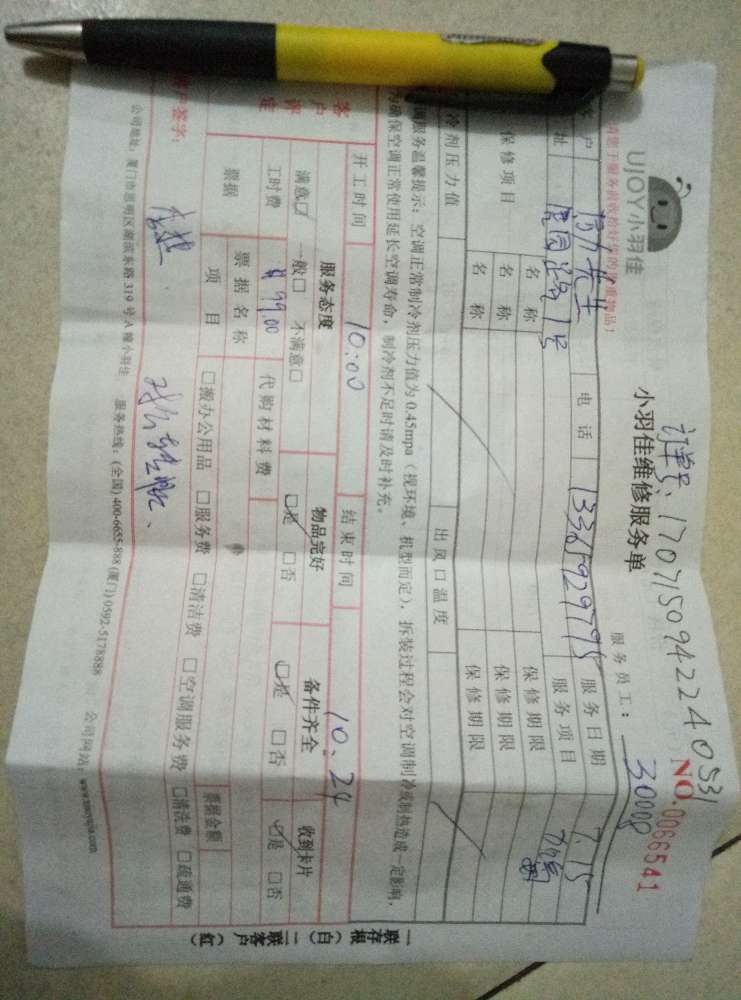 UJOY小羽佳
订单号:1707150942240531
NO.0066541
小羽佳维修服务单
服务员工: 30008
请您于服务前收拾好您的贵重物品!
客户 先生 电话 13365929795 服务日期 7.15
址 路1号 服务项目
保修项目 名称 保修期限
名称 保修期限
名称 保修期限
冷剂压力值 出风口温度
调服务温馨提示:空调正常制冷剂压力值为0.45mpa(视环境、机型而定),拆装过程会对空调制冷或制热造成一定影响,
为确保空调正常使用延长空调寿命,制冷剂不足时请及时补充。
开工时间 10:00 结束时间 10.24
客户评定 服务态度 物品完好 备件齐全 收到卡片
满意☑ 一般□ 不满意□ ☑是 □否 ☑是 □否 ☑是 □否
工时费 ¥99.00 代购材料费
票据 票据名称 票据金额
项目 □搬办公用品 □服务费 □清洁费 □空调服务费 □清洗费 □疏通费
客户签字:
公司地址:厦门市思明区湖滨东路319号A幢小羽佳 服务热线:(全国)400-6655-888(厦门)0592-5178888 公司网站:www.xiaoyujia.com
一联存根(白)二联客户(红)